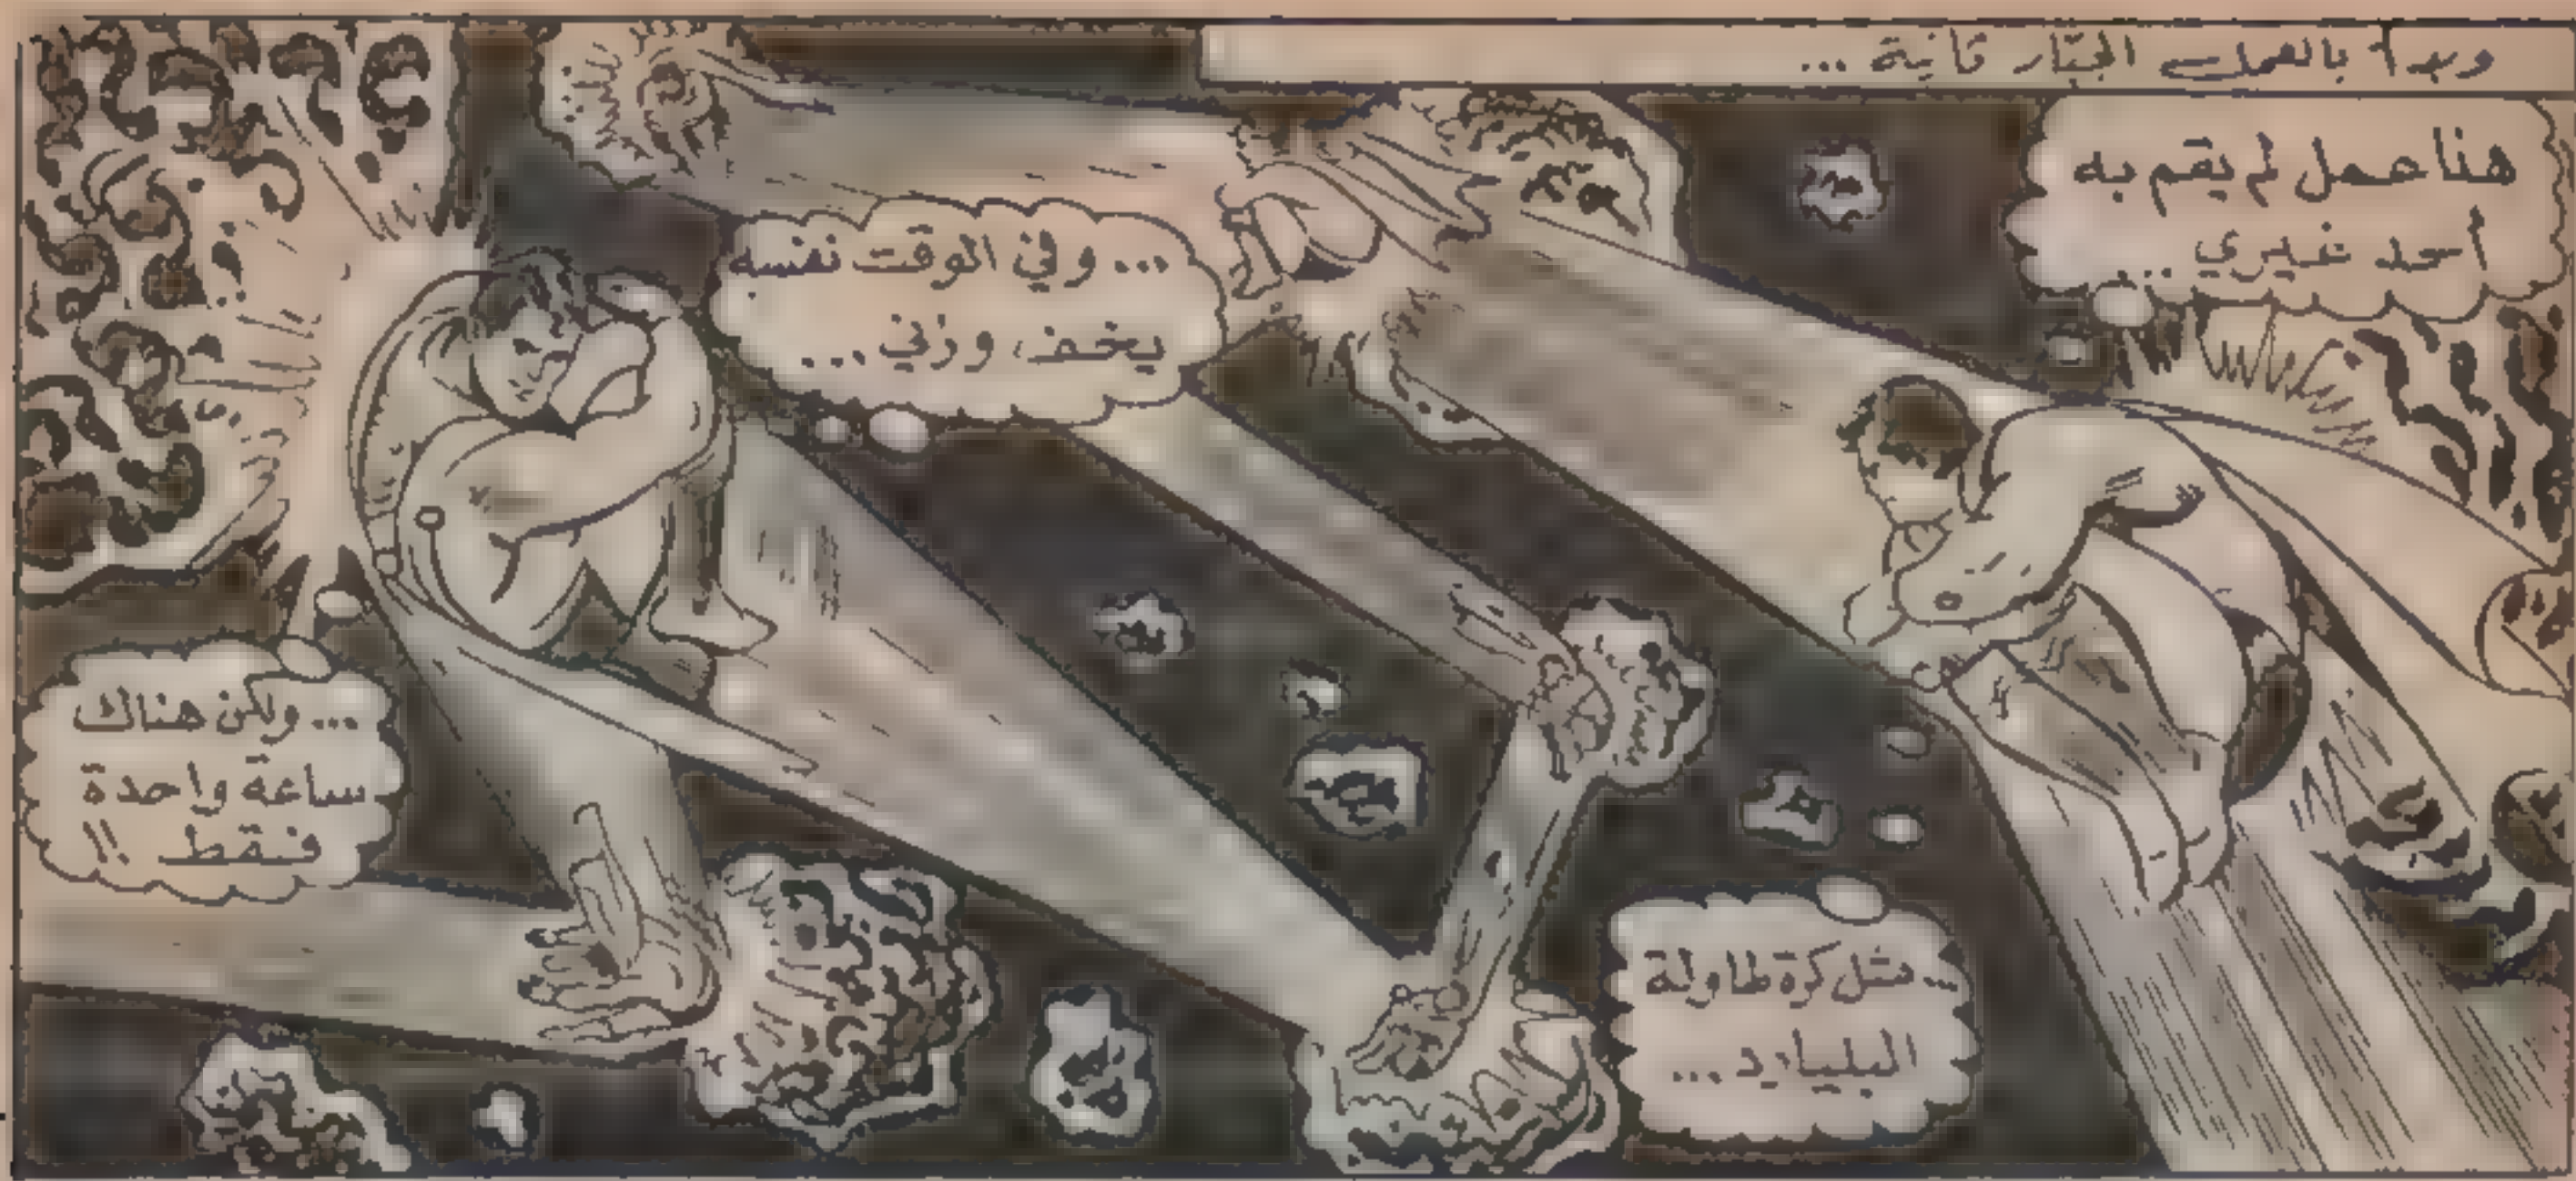 وبدأ بالعمل الجبّار ثانية ...
هنا عمل لم يقم به
أحد غيري ...
... مثل كرة طاولة
البليارد ...
... وفي الوقت نفسه
يخف وزني ...
... ولكن هناك
ساعة واحدة
فقط !!